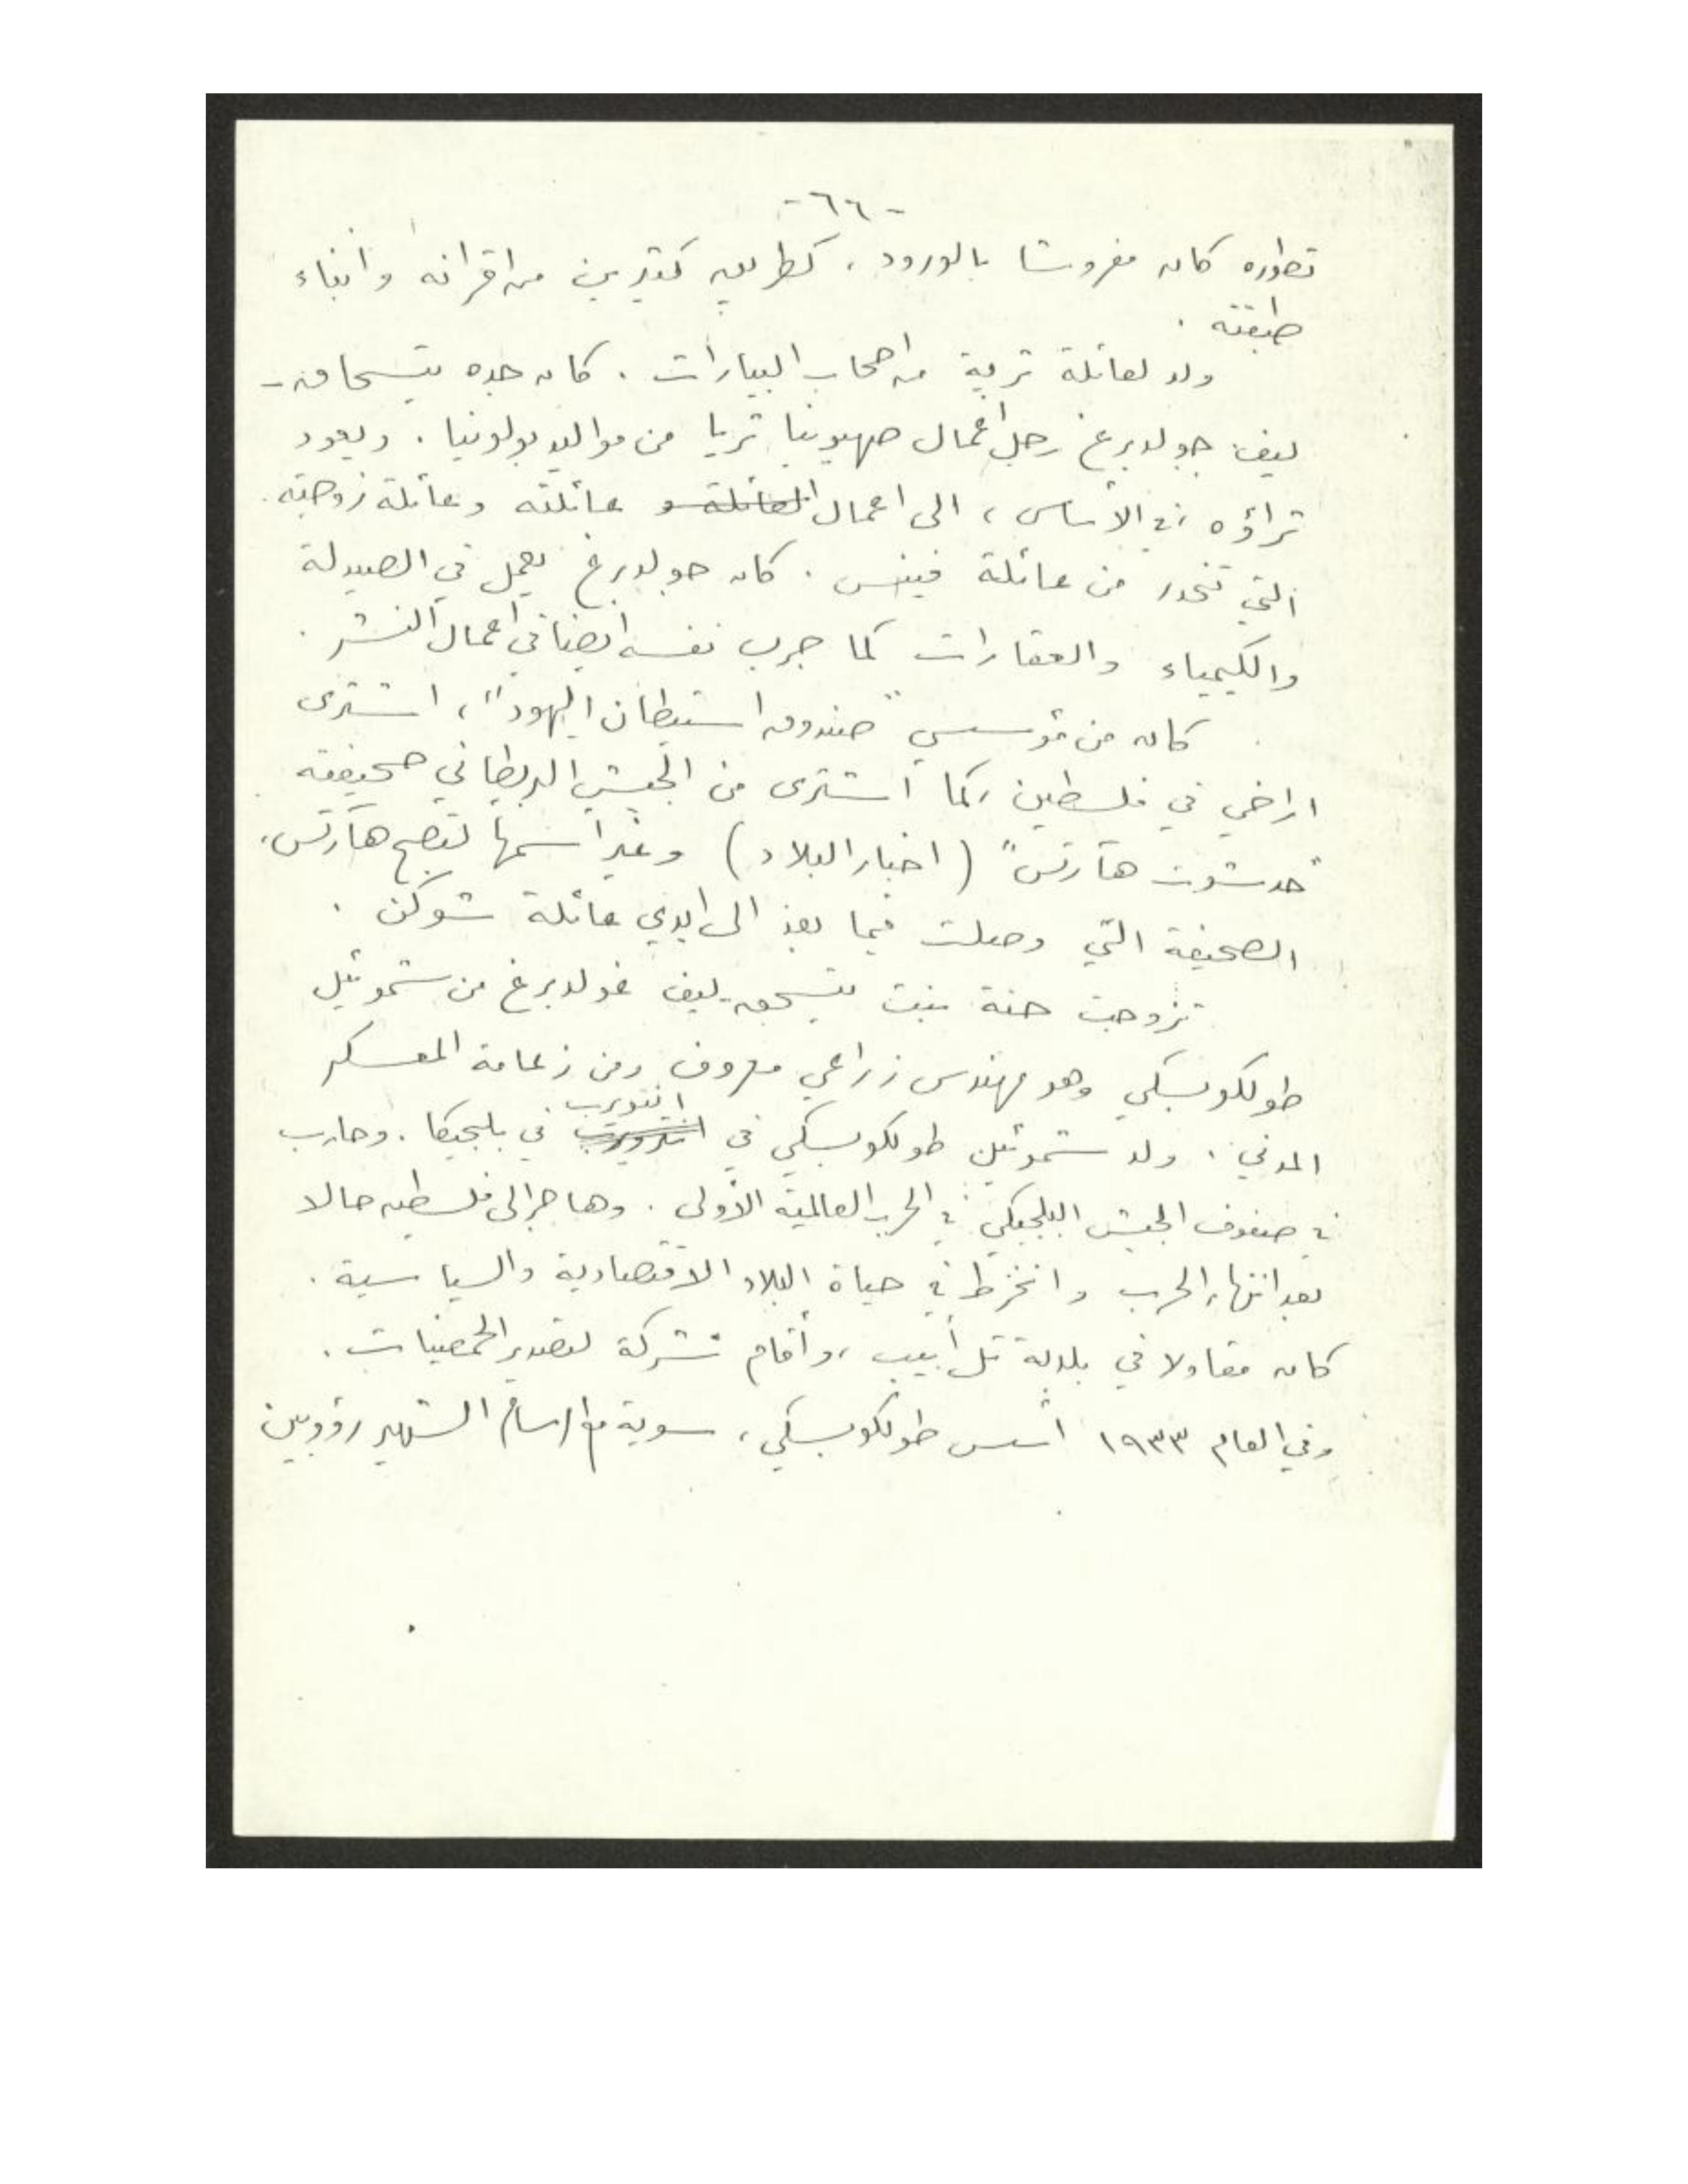 -٦٦-
تطوره كان مفروشا بالورود، كطريق كثيرين من اقرانه وأبناء
طبقته.
ولد لعائلة ثرية من اصحاب البيارات. كان جده يتسحاق-
ليف جولدبرغ رجل أعمال صهيونيا ثريا من مواليد بولونيا. ويعود
ثراؤه، في الأساس، الى اعمال العائلة و عائلته وعائلة زوجته
التي تنحدر من عائلة فينس. كان جولدبرغ يعمل في الصيدلة
والكيمياء والعقارات كما جرب نفسه ايضا في أعمال النشر.
كان من مؤسسي "صندوق استيطان اليهود"، اشترى
اراضي في فلسطين، كما اشترى من الجيش البريطاني صحيفته
"حدشوت هآرتس" (اخبار البلاد) وغير اسمها لتصبح هآرتس،
الصحيفة التي وصلت فيما بعد الى ايدي عائلة شوكن.
تزوجت حنة بنت يتسحق-ليف غولدبرغ من شموئيل
طولكوبسكي وهو مهندس زراعي معروف ومن زعامة المعسكر
المدني. ولد شموئيل طولكوبسكي في انتويرب في بلجيكا. وحارب
في صفوف الجيش البلجيكي في الحرب العالمية الأولى. وهاجر الى فلسطين حالا
بعد انتهاء الحرب وانخرط في حياة البلاد الاقتصادية والسياسية.
كان مقاولا في بلدية تل أبيب، وأقام شركة لتصدير الحمضيات.
وفي العام ١٩٣٣ أسس طولكوبسكي، سوية مع الرسام الشهير رؤوبين